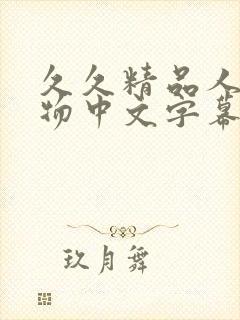 久久精品人
物中文字幕
玖月舞